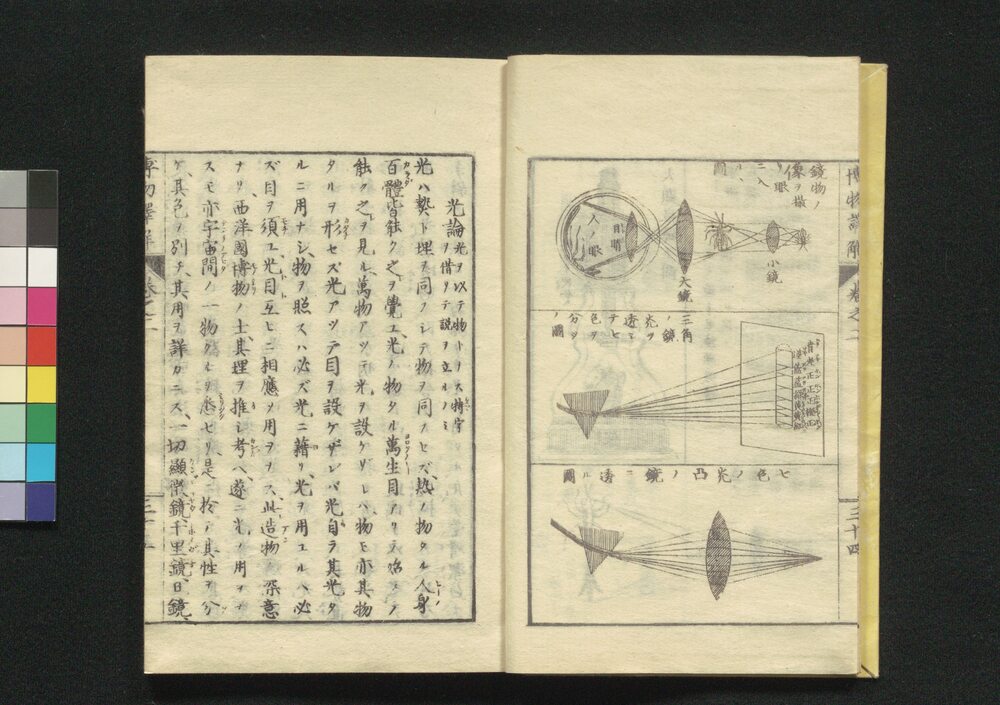 鏡物ノ
像ヲ撮
人ノ眼
目睛
大鏡
小鏡
三角
鏡ノ
光ヲ
透シテ
七色ヲ
分ツ
ノ圖
七色ノ光凸ノ鏡ニ透ル圖
三十四
光論光ヲ以テ物トナス特字
ヲ借リテ説ヲ立ルノミ
光ハ熱ト理ヲ同フシテ物ヲ同フセズ、熱ノ物タル人身
百體皆能ク之ヲ覺ユ、光ノ物タル萬生目アリテ始メテ
能ク之ヲ見ル、萬物アツテ光ヲ設ケザレハ物モ亦其物
タルヲ形セズ光アツテ目ヲ設ケザレバ光自ラ其光タ
ルニ用ナシ、物ヲ照スハ必ズ光ニ藉リ、光ヲ用ユルハ必
ズ目ヲ須ユ、光目互ヒニ相應メ用ヲナス、此造物ノ深意
ナリ、西洋國博物ノ士其理ヲ推シ考ヘ遂ニ光ノ用ヲナ
スモ亦宇宙間ノ一物タルヲ悉セリ、是ニ於テ其性ヲ分
ケ其色ヲ別チ、其用ヲ詳カニス、一切顯微鏡、千里鏡、日鏡